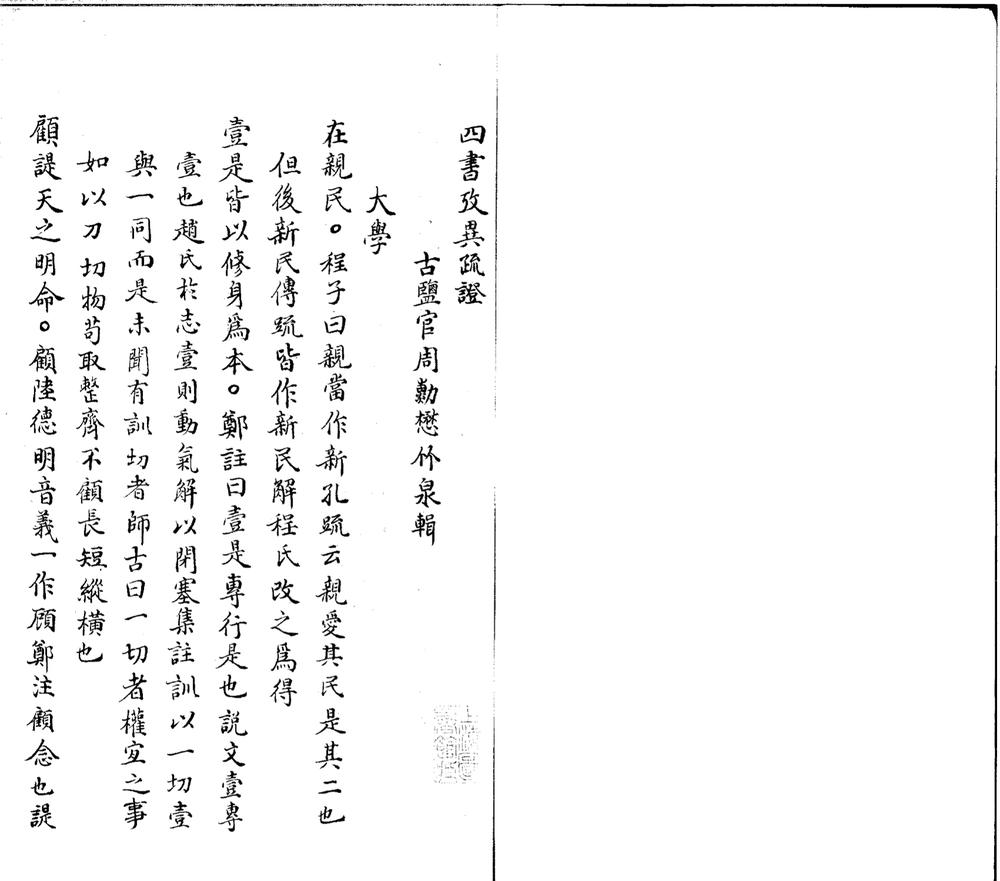 四書攷異疏證
古鹽官周勳懋竹泉輯
大學
在親民。程子曰親當作新孔疏云親愛其民是其二也
但後新民傳疏皆作新民解程氏改之爲得
壹是皆以修身爲本。鄭註曰壹是專行是也說文壹專
壹也趙氏於志壹則動氣解以閉塞集註訓以一切壹
與一同而是未聞有訓切者師古曰一切者權宜之事
如以刀切物茍取整齊不顧長短縱橫也
顧諟天之明命。顧陸德明音義一作顾鄭注顧念也諟